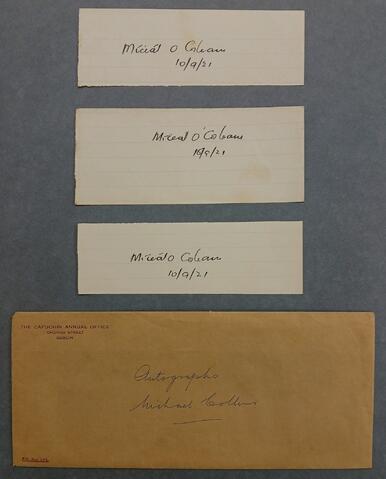 Mícéál O Coleain
10/9/21
Míceal O'Coleain
10/9/21
Mícéál O Coleain
10/9/21
THE CAPUCHIN ANNUAL OFFICE
CHURCH STREET
DUBLIN
Autographs
Michael Collins